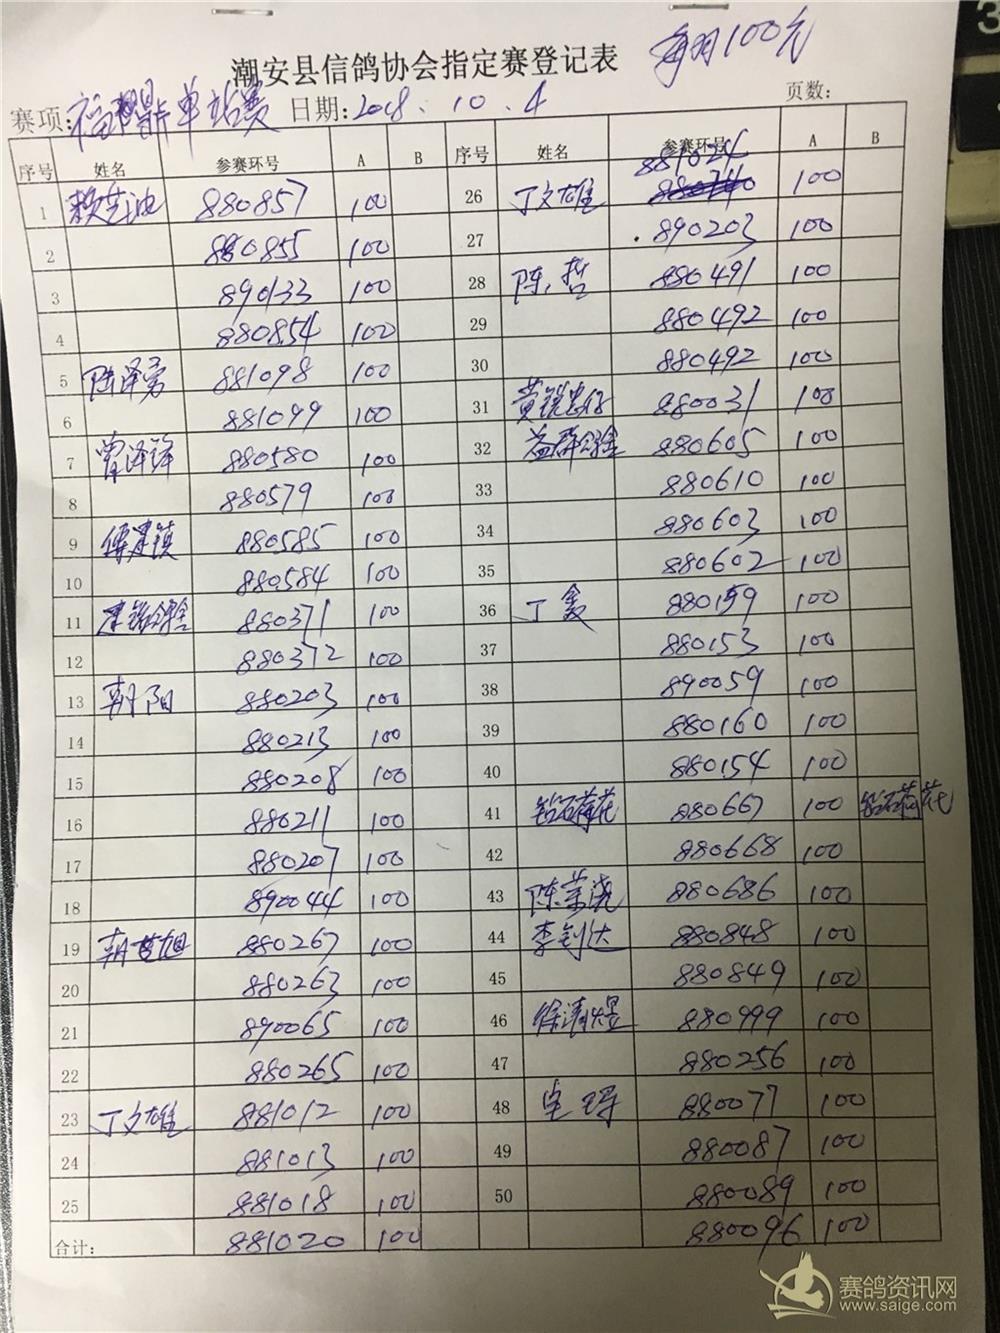 每羽100元
潮安县信鸽协会指定赛登记表
赛项：福鼎单站赛 日期：2018.10.4 页数：
序号 姓名 参赛环号 A B 序号 姓名 参赛环号 A B
1 880857 100 26 丁文雄 881024 100
2 880855 100 27 890203 100
3 890133 100 28 陈哲 880491 100
4 880854 100 29 880492 100
5 陆泽勇 881098 100 30 880492 100
6 881099 100 31 880031 100
7 曾泽锋 880580 100 32 益群鸽舍 880605 100
8 880579 100 33 880610 100
9 傅建镇 880585 100 34 880603 100
10 880584 100 35 880602 100
11 建铭鸽舍 880371 100 36 丁鑫 880159 100
12 880372 100 37 880153 100
13 朝阳 880203 100 38 890059 100
14 880213 100 39 880160 100
15 880208 100 40 880154 100
16 880211 100 41 钻石荷花 880667 100 钻石荷花
17 880207 100 42 880668 100
18 890044 100 43 陈荣浇 880686 100
19 880267 100 44 李钊达 880848 100
20 880263 100 45 880849 100
21 890065 100 46 徐清煜 880999 100
22 880265 100 47 880256 100
23 丁文雄 881012 100 48 880077 100
24 881013 100 49 880087 100
25 881018 100 50 880089 100
合计： 881020 100 880096 100
赛鸽资讯网
www.saige.com